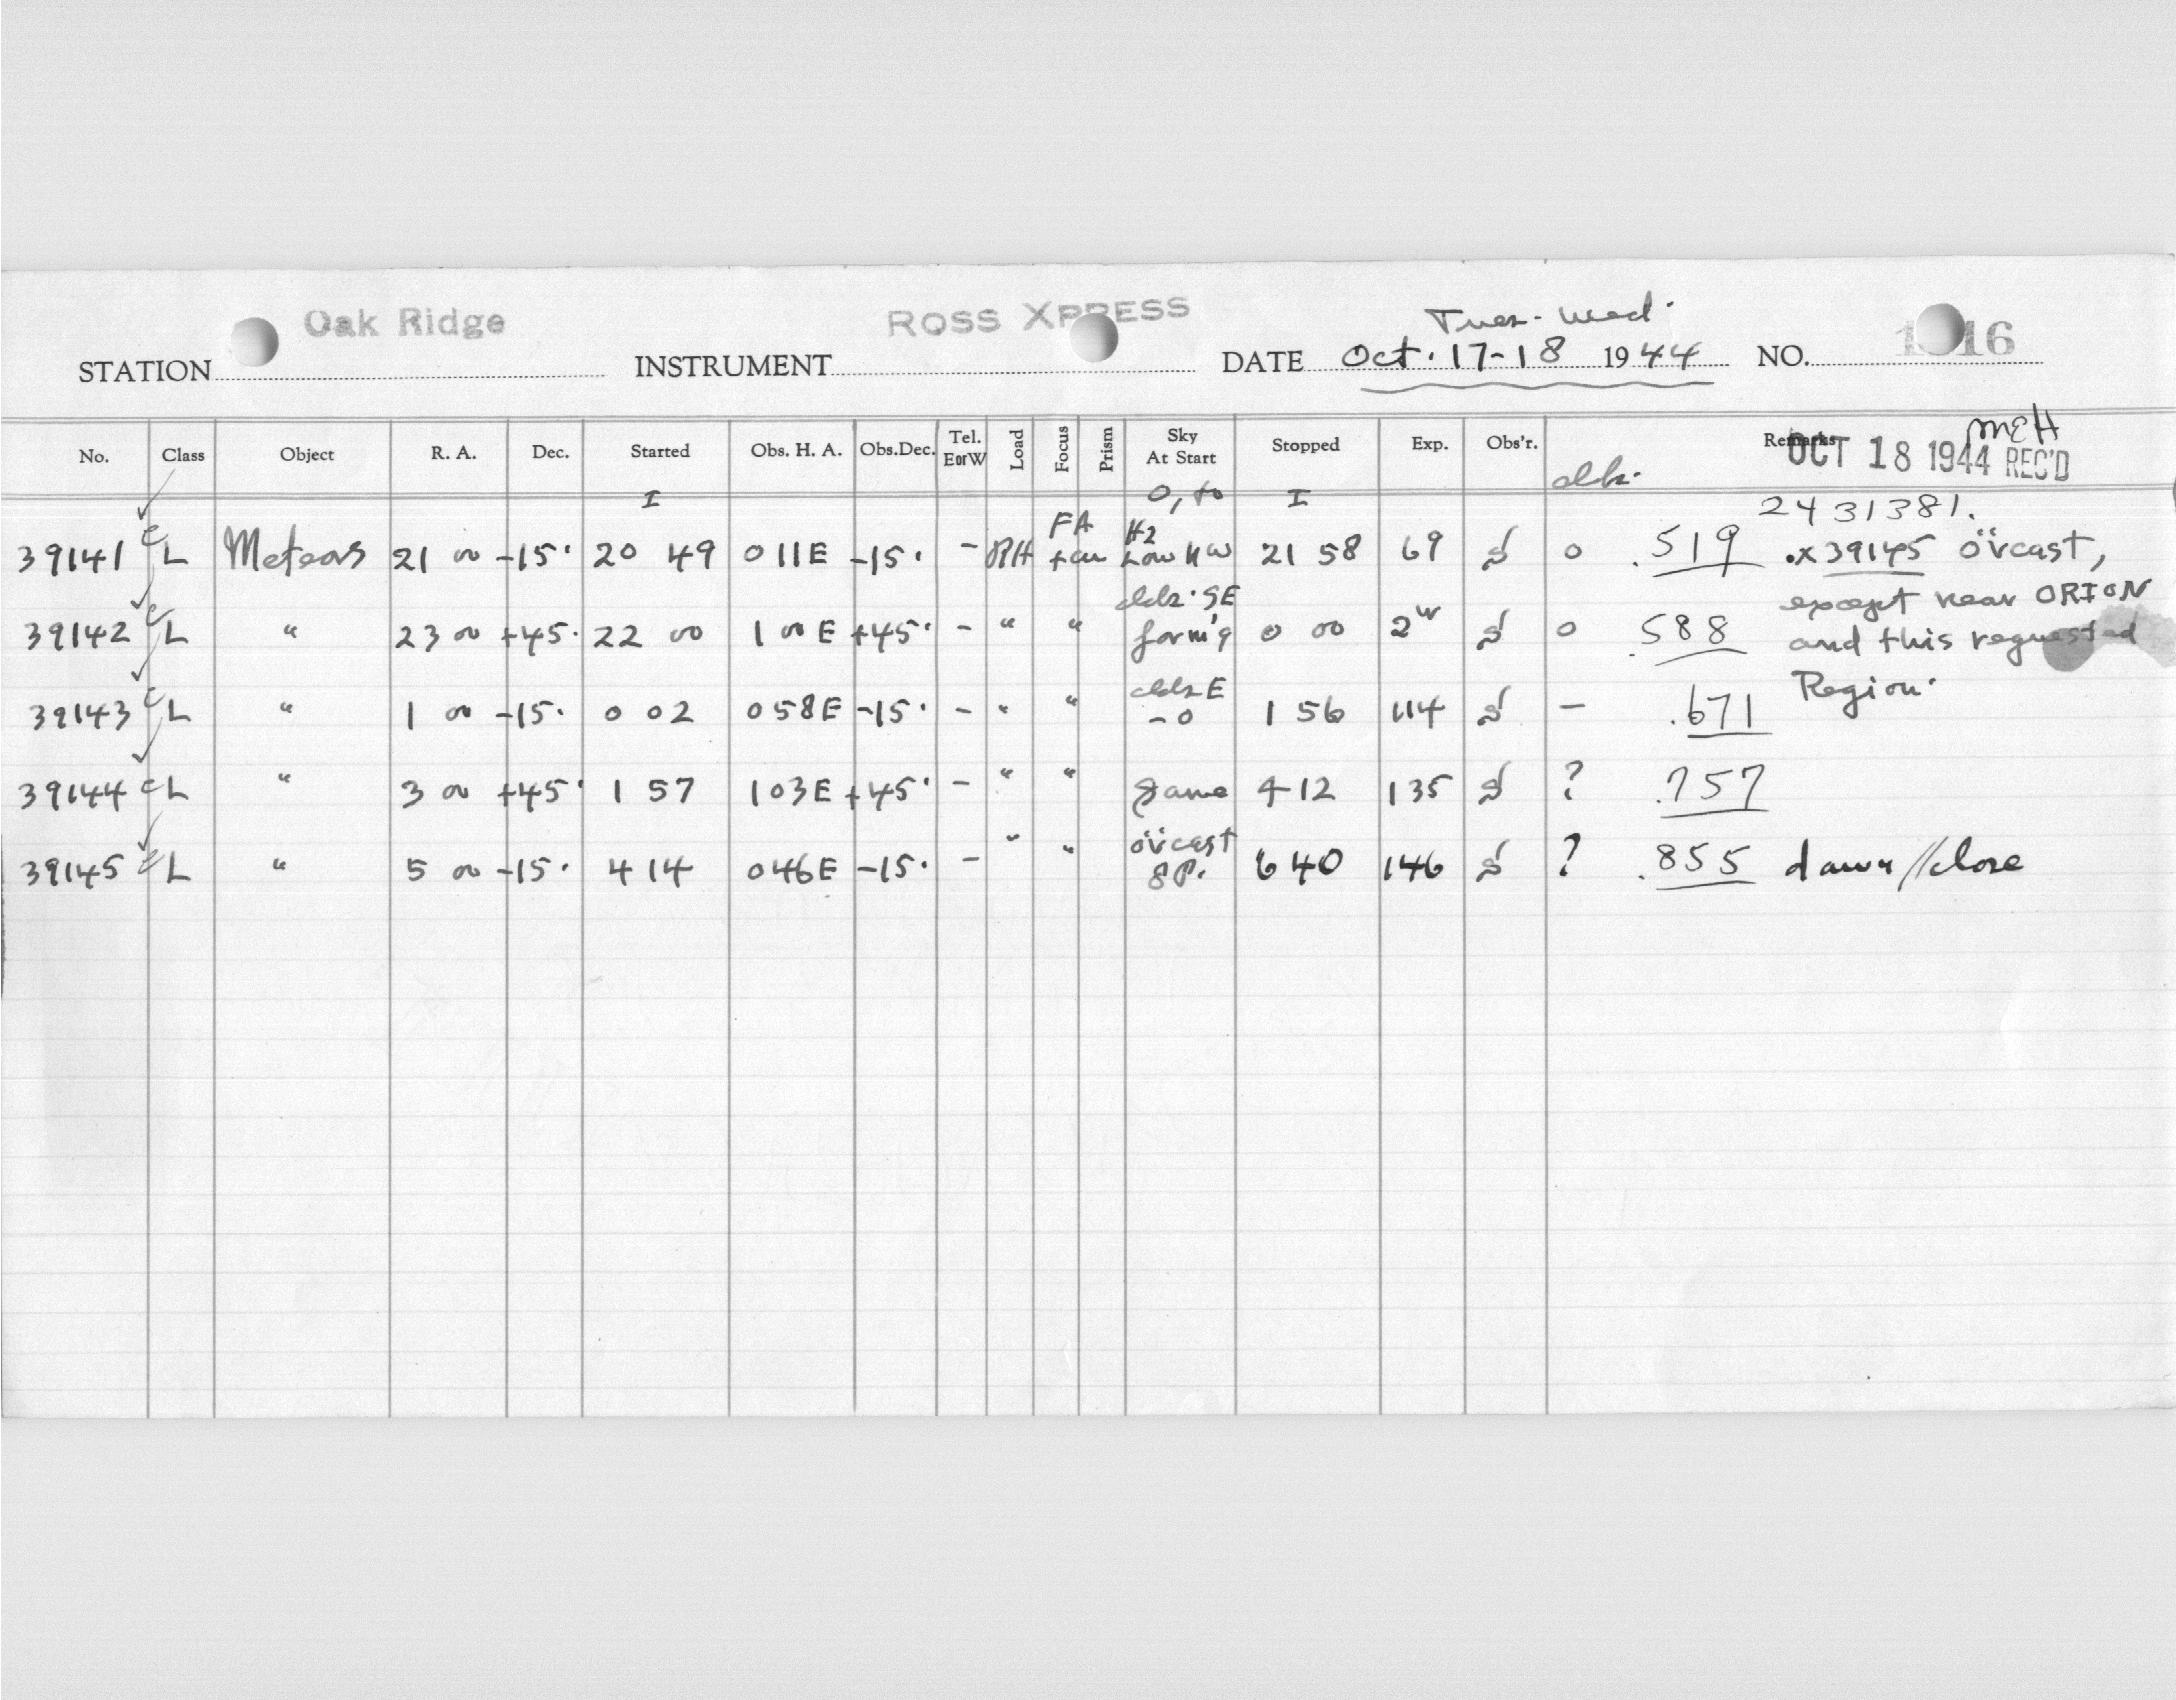 Oak Ridge ROSS XPRESS Tues-Wed.
STATION INSTRUMENT DATE Oct. 17-18 1944 NO. 16
No. Class Object R. A. Dec. Started Obs. H. A. Obs.Dec. Tel. E or W Load Focus Prism Sky At Start Stopped Exp. Obs'r. Remarks
MEH
OCT 18 1944 REC'D
clds.
I 0, to I 2431381.
39141 c L Meteors 21 00 -15° 20 49 0 11E -15° - PH FA Low NW 21 58 69 0 .519 .x39145 ov'cast,
39142 c L " 23 00 +45° 22 00 1 00E +45° - " " clds. SE form'g 0 00 0 .588 except near ORION
and this requested
39143 c L " 1 00 -15° 0 02 0 58E -15° - " " clds E - 0 1 56 114 - .671 Region.
39144 c L " 3 00 +45° 1 57 1 03E +45° - " " same 4 12 135 ? .757
39145 c L " 5 00 -15° 4 14 0 46E -15° - " " ov'cast 6 40 146 ? .855 dawn//close